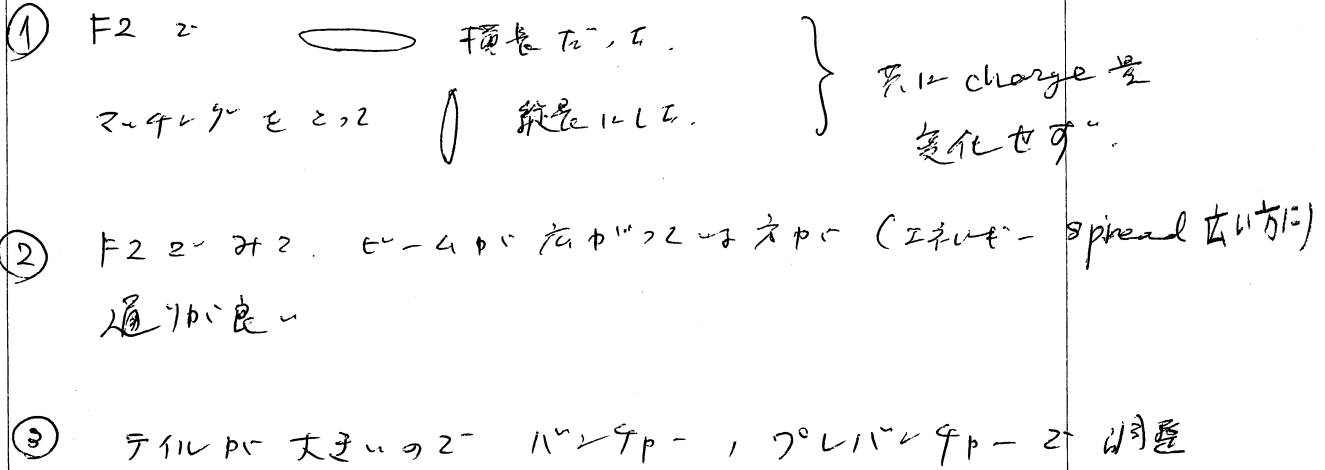 ① F2で 横長だった.
マッチングをとって 縦長にした.
共に charge 量
変化せず.
② F2でみて. ビームが広がっている方が (エネルギー spread 広い方に)
通りが良い
③ テイルが大きいので バンチャー, プレバンチャーで調整